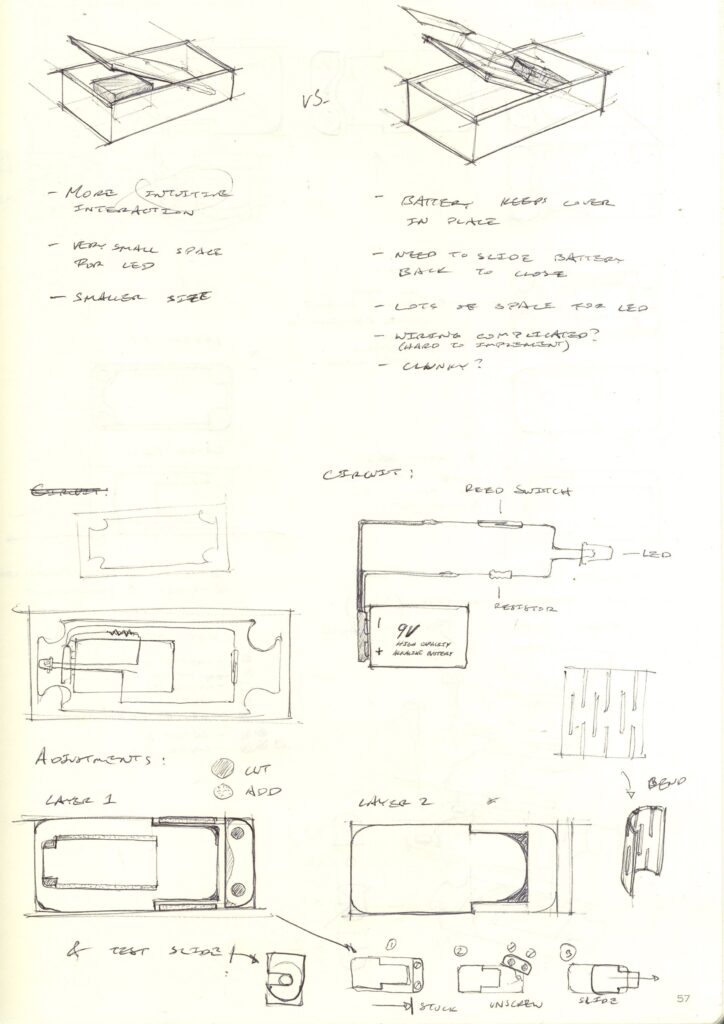 VS.
- MORE INTUITIVE
INTERACTION
- VERY SMALL SPACE
FOR LED
- SMALLER SIZE
- BATTERY KEEPS COVER
IN PLACE
- NEED TO SLIDE BATTERY
BACK TO CLOSE
- LOTS OF SPACE FOR LED
- WIRING COMPLICATED?
(HARD TO IMPLEMENT)
- CLUNKY?
CIRCUIT:
CIRCUIT:
REED SWITCH
LED
RESISTOR
9V
HIGH CAPACITY
ALKALINE BATTERY
- +
ADJUSTMENTS:
CUT
ADD
LAYER 1
LAYER 2
BEND
& TEST SLIDE
1
2
3
STUCK
UNSCREW
SLIDE
57